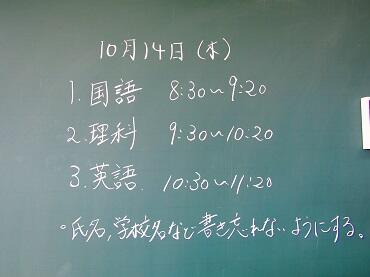 10月14日(木)
1.国語 8:30～9:20
2.理科 9:30～10:20
3.英語. 10:30～11:20
○氏名,学校名など書き忘れないようにする。